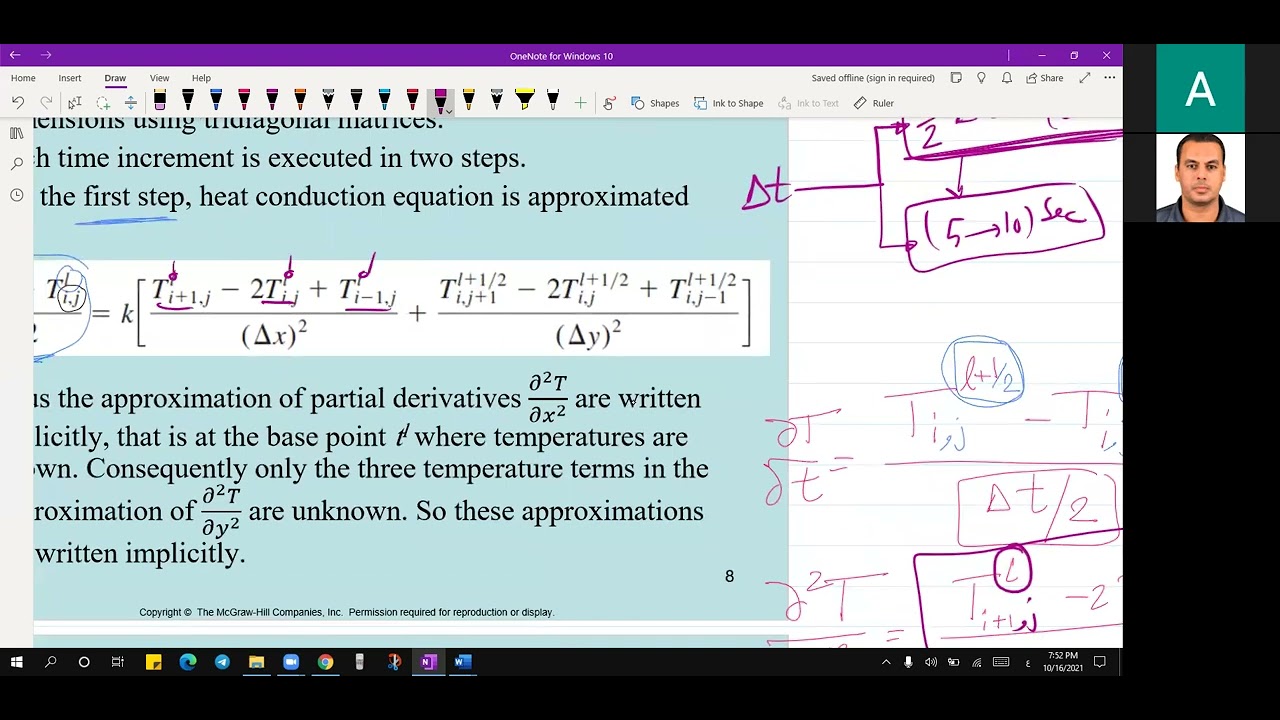 OneNote for Windows 10
Home Insert Draw View Help
Saved offline (sign in required) Share
Shapes Ink to Shape Ink to Text Ruler
ensions using tridiagonal matrices.
h time increment is executed in two steps.
the first step, heat conduction equation is approximated
T^l_{i,j} / 2 = k[ (T^l_{i+1,j} − 2T^l_{i,j} + T^l_{i−1,j}) / (Δx)² + (T^{l+1/2}_{i,j+1} − 2T^{l+1/2}_{i,j} + T^{l+1/2}_{i,j−1}) / (Δy)² ]
us the approximation of partial derivatives ∂²T/∂x² are written
licitly, that is at the base point t^l where temperatures are
wn. Consequently only the three temperature terms in the
roximation of ∂²T/∂y² are unknown. So these approximations
written implicitly.
8
Copyright © The McGraw-Hill Companies, Inc. Permission required for reproduction or display.
Δt
(5→10) Sec
∂T/∂t = (T^{l+1/2}_{i,j} − T_{i,
Δt/2
∂²T = T^l_{i+1,j} −2
A
7:52 PM
10/16/2021
ع